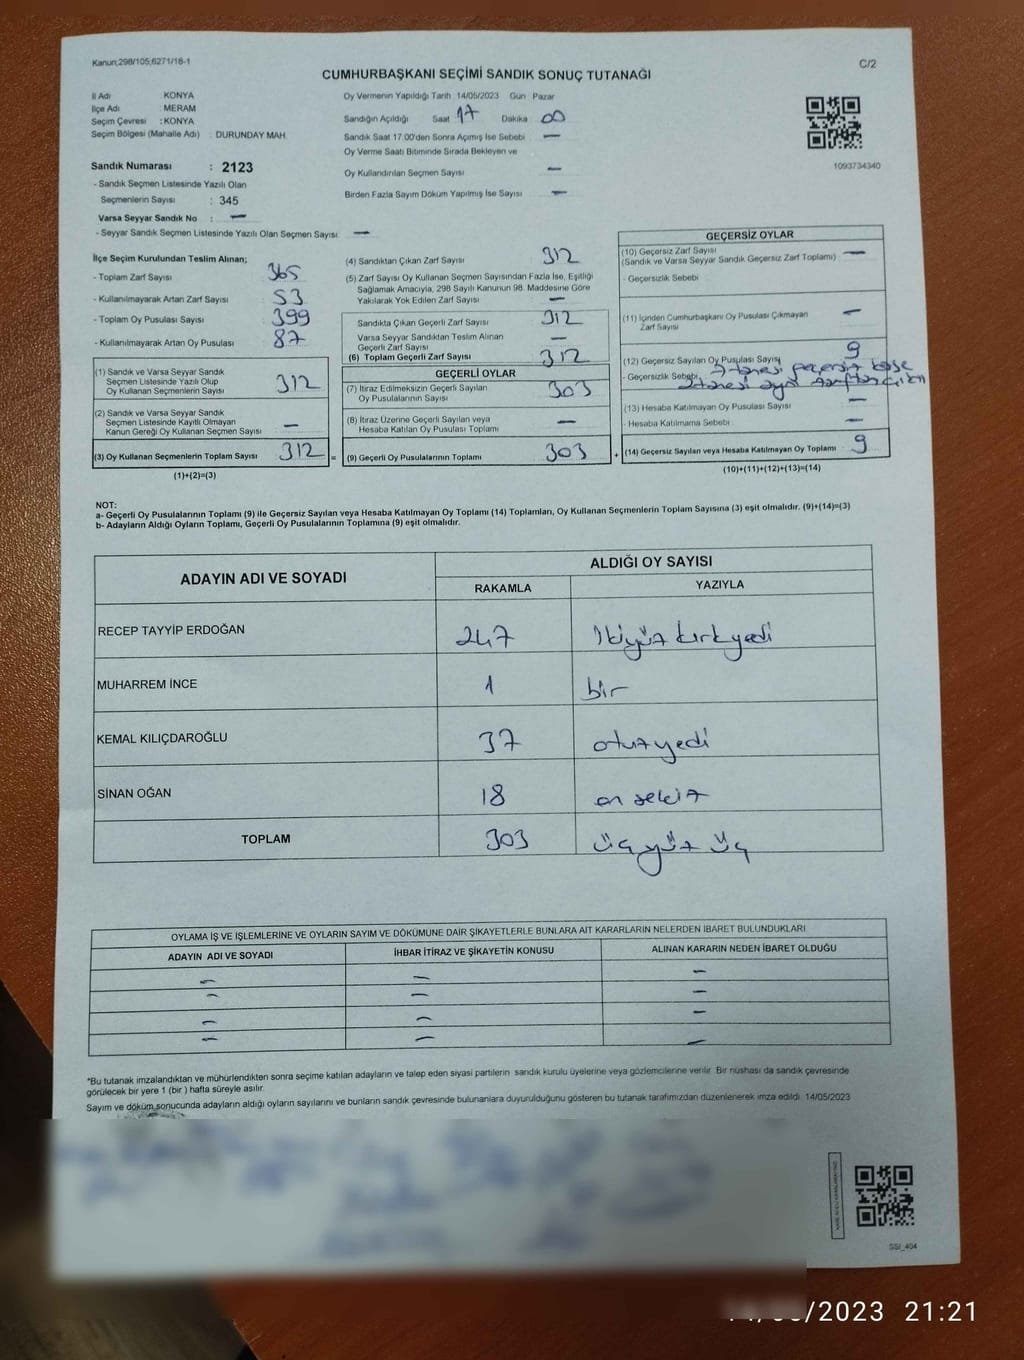 Kanun;298/105;6271/18-1
C/2
CUMHURBAŞKANI SEÇİMİ SANDIK SONUÇ TUTANAĞI
İl Adı : KONYA
İlçe Adı : MERAM
Seçim Çevresi : KONYA
Seçim Bölgesi (Mahalle Adı) : DURUNDAY MAH.
Sandık Numarası : 2123
- Sandık Seçmen Listesinde Yazılı Olan
Seçmenlerin Sayısı : 345
Varsa Seyyar Sandık No : —
- Seyyar Sandık Seçmen Listesinde Yazılı Olan Seçmen Sayısı: —
Oy Vermenin Yapıldığı Tarih 14/05/2023 Gün Pazar
Sandığın Açıldığı Saat 17 Dakika 00
Sandık Saat 17:00'den Sonra Açımış İse Sebebi —
Oy Verme Saati Bitiminde Sırada Bekleyen ve
Oy Kullandırılan Seçmen Sayısı —
Birden Fazla Sayım Döküm Yapılmış İse Sayısı —
1093734340
İlçe Seçim Kurulundan Teslim Alınan;
- Toplam Zarf Sayısı 365
- Kullanılmayarak Artan Zarf Sayısı 53
- Toplam Oy Pusulası Sayısı 399
- Kullanılmayarak Artan Oy Pusulası 87
(1) Sandık ve Varsa Seyyar Sandık
Seçmen Listesinde Yazılı Olup
Oy Kullanan Seçmenlerin Sayısı 312
(2) Sandık ve Varsa Seyyar Sandık
Seçmen Listesinde Kayıtlı Olmayan
Kanun Gereği Oy Kullanan Seçmen Sayısı —
(3) Oy Kullanan Seçmenlerin Toplam Sayısı 312 =
(1)+(2)=(3)
(4) Sandıktan Çıkan Zarf Sayısı 312
(5) Zarf Sayısı Oy Kullanan Seçmen Sayısından Fazla İse, Eşitliği
Sağlamak Amacıyla, 298 Sayılı Kanunun 98. Maddesine Göre
Yakılarak Yok Edilen Zarf Sayısı —
Sandıkta Çıkan Geçerli Zarf Sayısı 312
Varsa Seyyar Sandıktan Teslim Alınan
Geçerli Zarf Sayısı —
(6) Toplam Geçerli Zarf Sayısı 312
GEÇERLİ OYLAR
(7) İtiraz Edilmeksizin Geçerli Sayılan
Oy Pusulalarının Sayısı 303
(8) İtiraz Üzerine Geçerli Sayılan veya
Hesaba Katılan Oy Pusulası Toplamı —
(9) Geçerli Oy Pusulalarının Toplamı 303 +
GEÇERSİZ OYLAR
(10) Geçersiz Zarf Sayısı —
(Sandık ve Varsa Seyyar Sandık Geçersiz Zarf Toplamı)
- Geçersizlik Sebebi
(11) İçinden Cumhurbaşkanı Oy Pusulası Çıkmayan
Zarf Sayısı —
(12) Geçersiz Sayılan Oy Pusulası Sayısı 9
- Geçersizlik Sebebi 7 tanesi geçersiz kaşe
2 tanesi aynı zarftan çıktı
(13) Hesaba Katılmayan Oy Pusulası Sayısı —
- Hesaba Katılmama Sebebi —
(14) Geçersiz Sayılan veya Hesaba Katılmayan Oy Toplamı 9
(10)+(11)+(12)+(13)=(14)
NOT:
a- Geçerli Oy Pusulalarının Toplamı (9) ile Geçersiz Sayılan veya Hesaba Katılmayan Oy Toplamı (14) Toplamları, Oy Kullanan Seçmenlerin Toplam Sayısına (3) eşit olmalıdır. (9)+(14)=(3)
b- Adayların Aldığı Oyların Toplamı, Geçerli Oy Pusulalarının Toplamına (9) eşit olmalıdır.
ADAYIN ADI VE SOYADI
ALDIĞI OY SAYISI
RAKAMLA YAZIYLA
RECEP TAYYİP ERDOĞAN 247 İkiyüz kırkyedi
MUHARREM İNCE 1 bir
KEMAL KILIÇDAROĞLU 37 otuzyedi
SİNAN OĞAN 18 on sekiz
TOPLAM 303 üç yüz üç
OYLAMA İŞ VE İŞLEMLERİNE VE OYLARIN SAYIM VE DÖKÜMÜNE DAİR ŞİKAYETLERLE BUNLARA AİT KARARLARIN NELERDEN İBARET BULUNDUKLARI
ADAYIN ADI VE SOYADI İHBAR İTİRAZ VE ŞİKAYETİN KONUSU ALINAN KARARIN NEDEN İBARET OLDUĞU
— — —
— — —
— — —
— — —
*Bu tutanak imzalandıktan ve mühürlendikten sonra seçime katılan adayların ve talep eden siyasi partilerin sandık kurulu üyelerine veya gözlemcilerine verilir. Bir nüshası da sandık çevresinde
görülecek bir yere 1 (bir) hafta süreyle asılır.
Sayım ve döküm sonucunda adayların aldığı oyların sayılarını ve bunların sandık çevresinde bulunanlara duyurulduğunu gösteren bu tutanak tarafımızdan düzenlenerek imza edildi. 14/05/2023
SSI_404
/2023 21:21